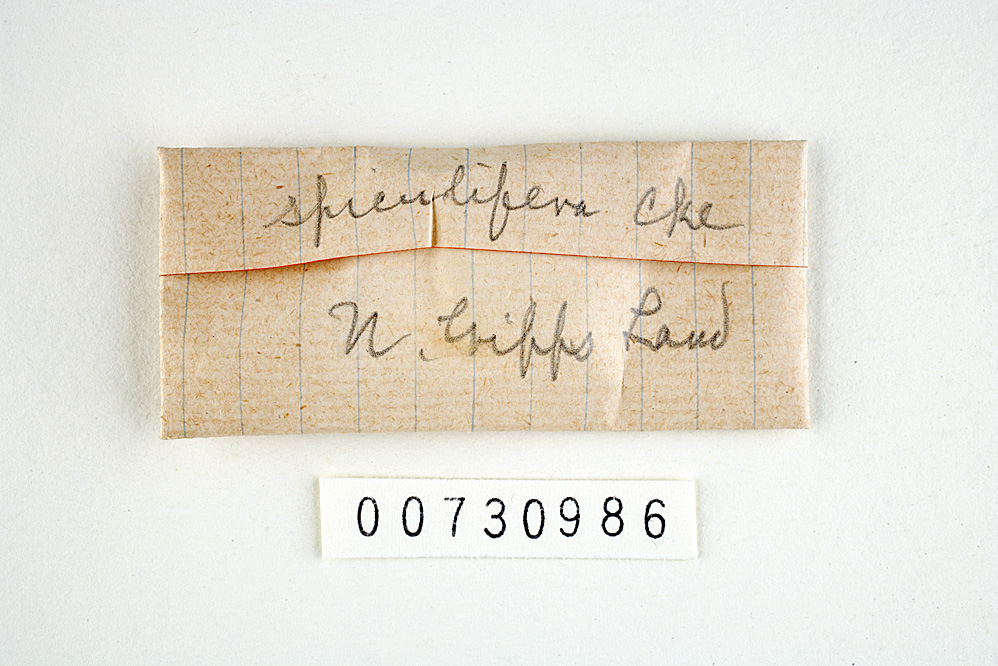 spiculifera Cke
N. Gipps Land
00730986